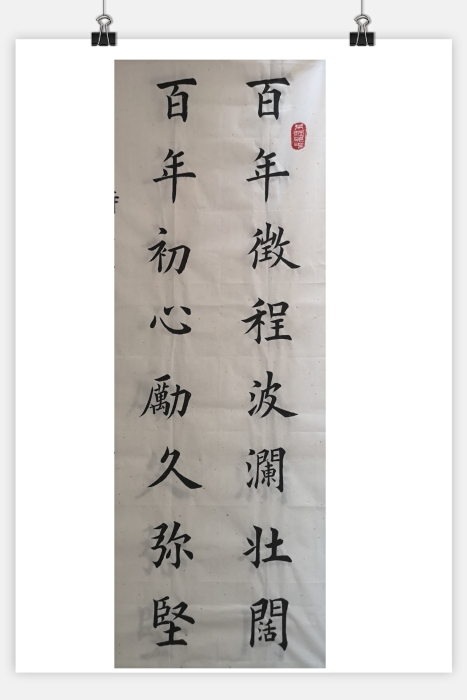 百年徵程波瀾壮闊
百年初心勵久弥堅